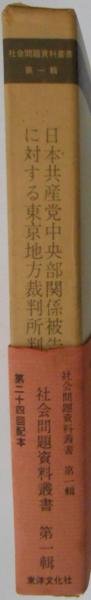 社会問題資料叢書
第一輯
日本共産党中央部関係被告
に対する東京地方裁判所判
社会問題資料叢書 第一輯
社会問題資料叢書 第一輯
第二十四回配本
東洋文化社